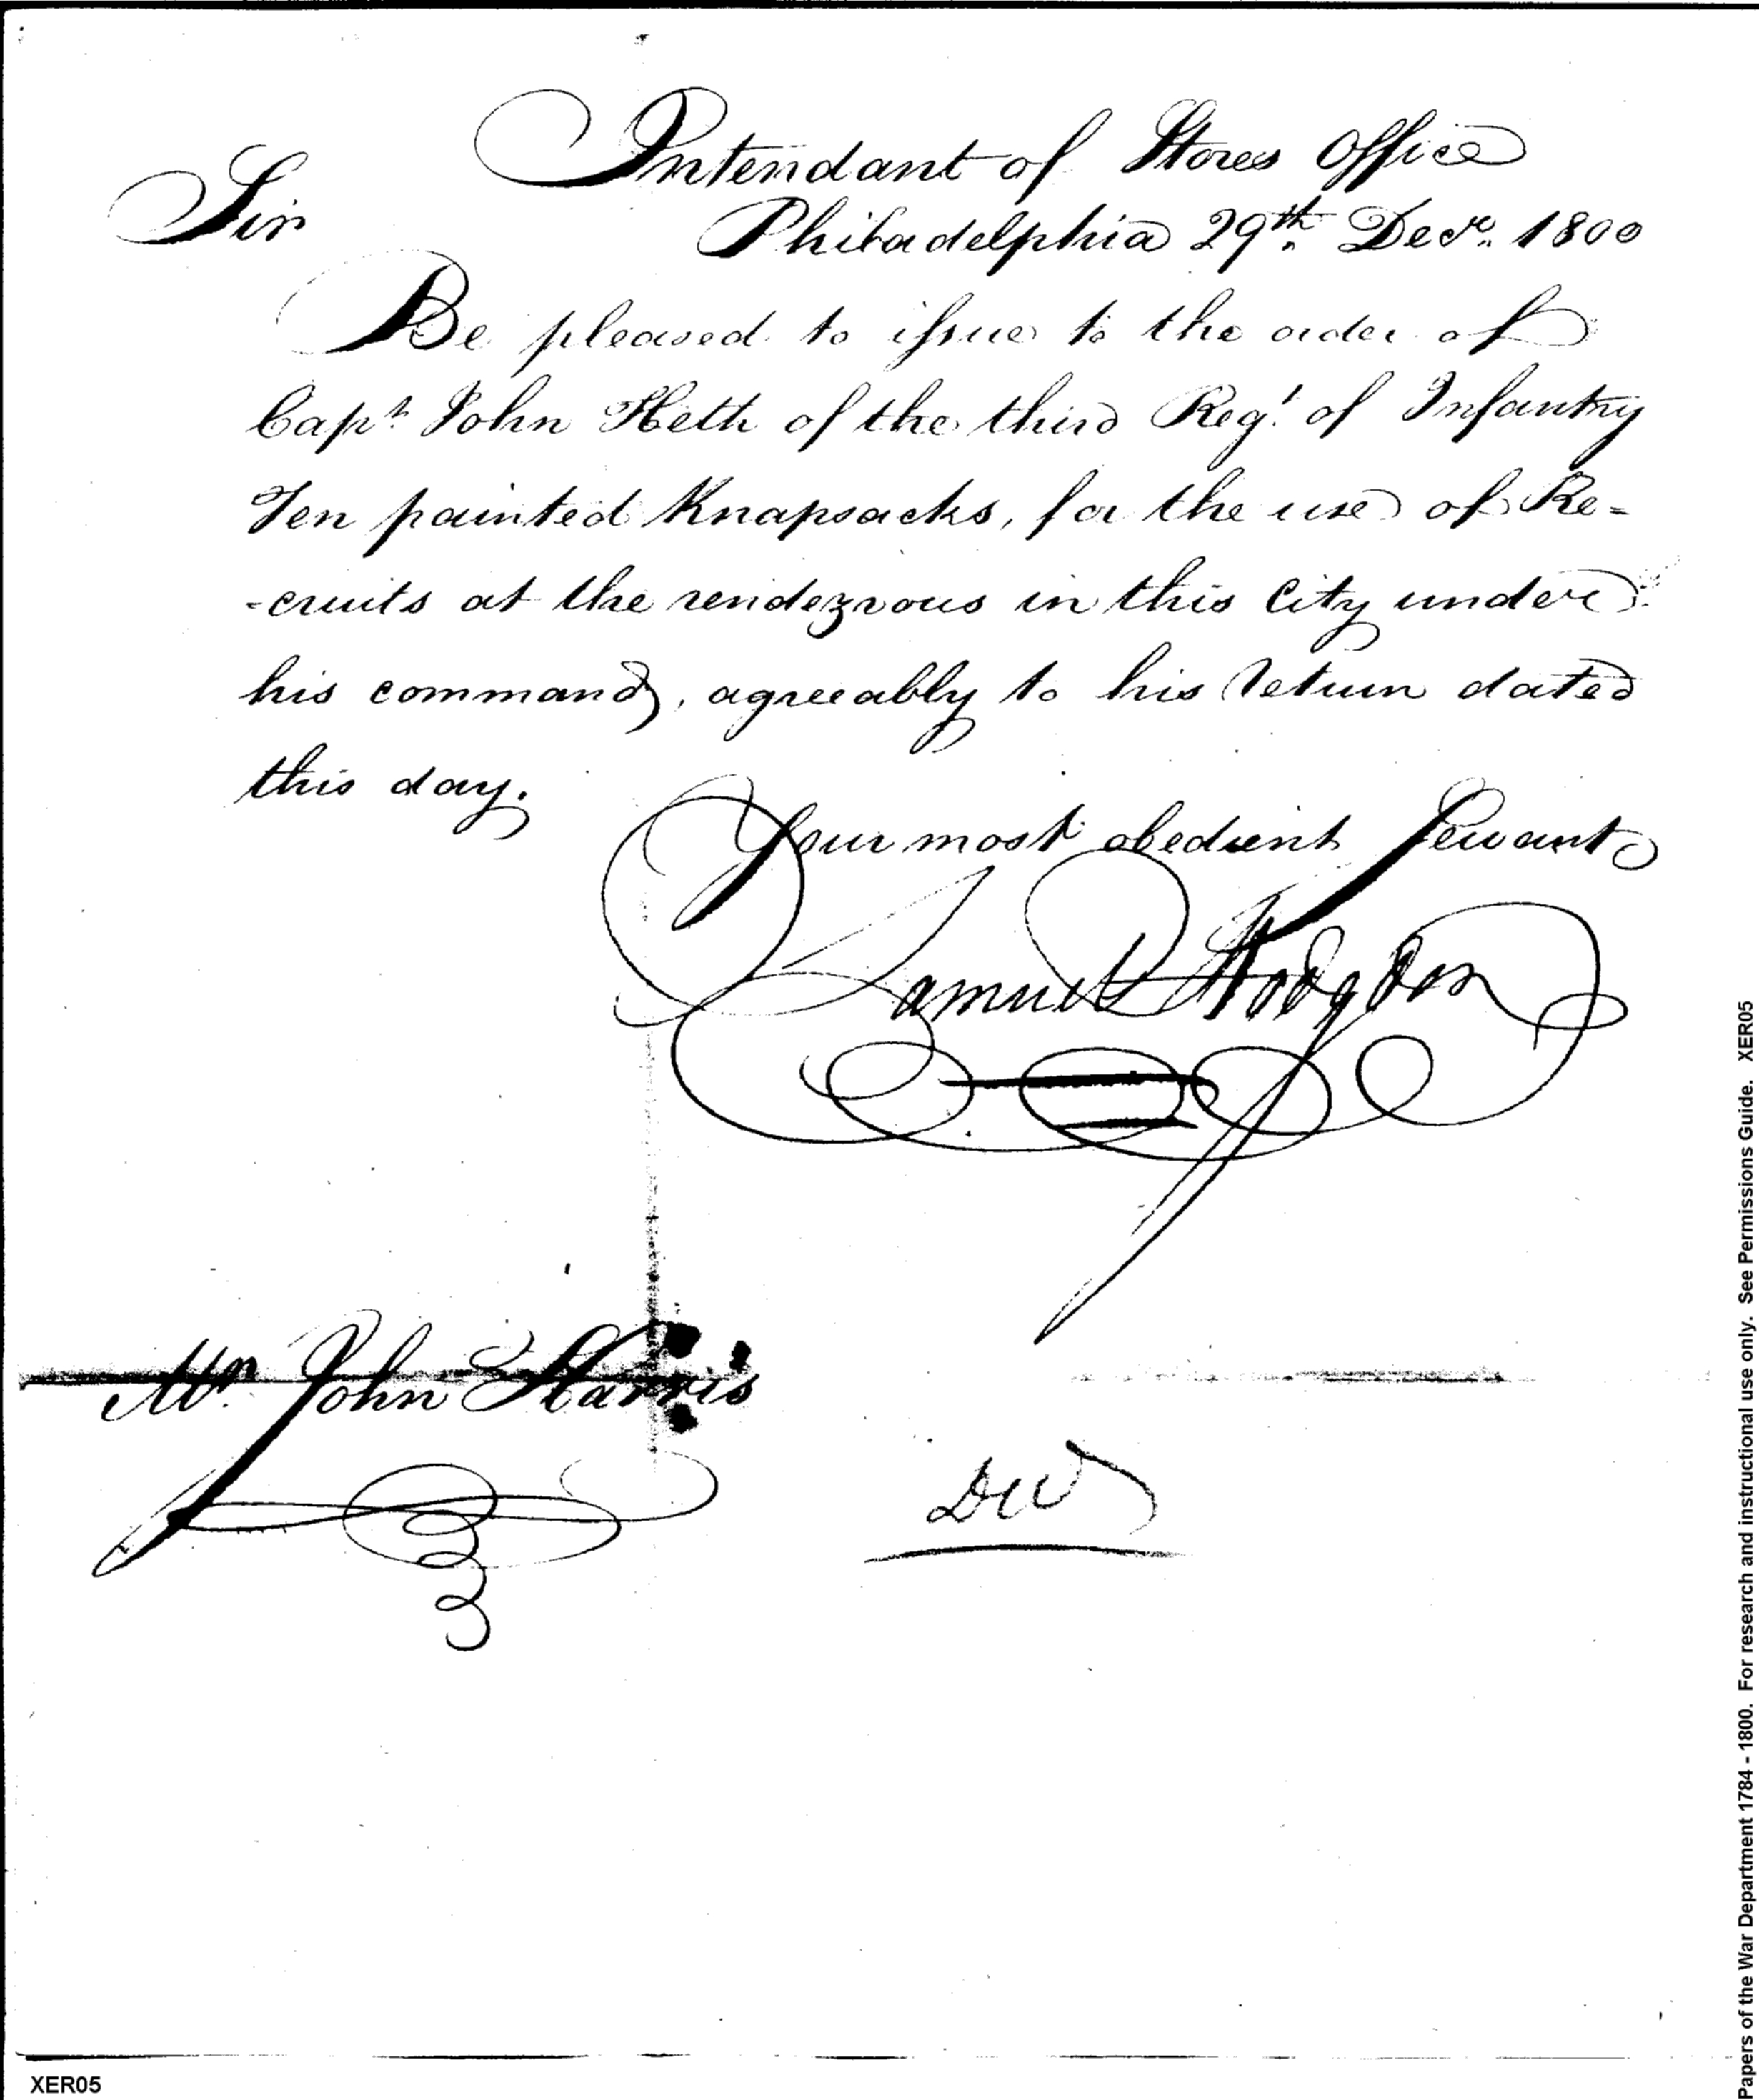 Intendant of Stores Office
Sir
Philadelphia 29th. Decr. 1800
Be pleased to issue to the order of
Capt. John Heth of the third Regt. of Infantry
Ten painted Knapsacks, for the use of Re=
-cruits at the rendezvous in this City under
his command, agreeably to his return dated
this day.
Your most obedient Servant
Samuel Hodgdon
Mr. John Harris
DW
XER05
Papers of the War Department 1784 - 1800. For research and instructional use only. See Permissions Guide. XER05